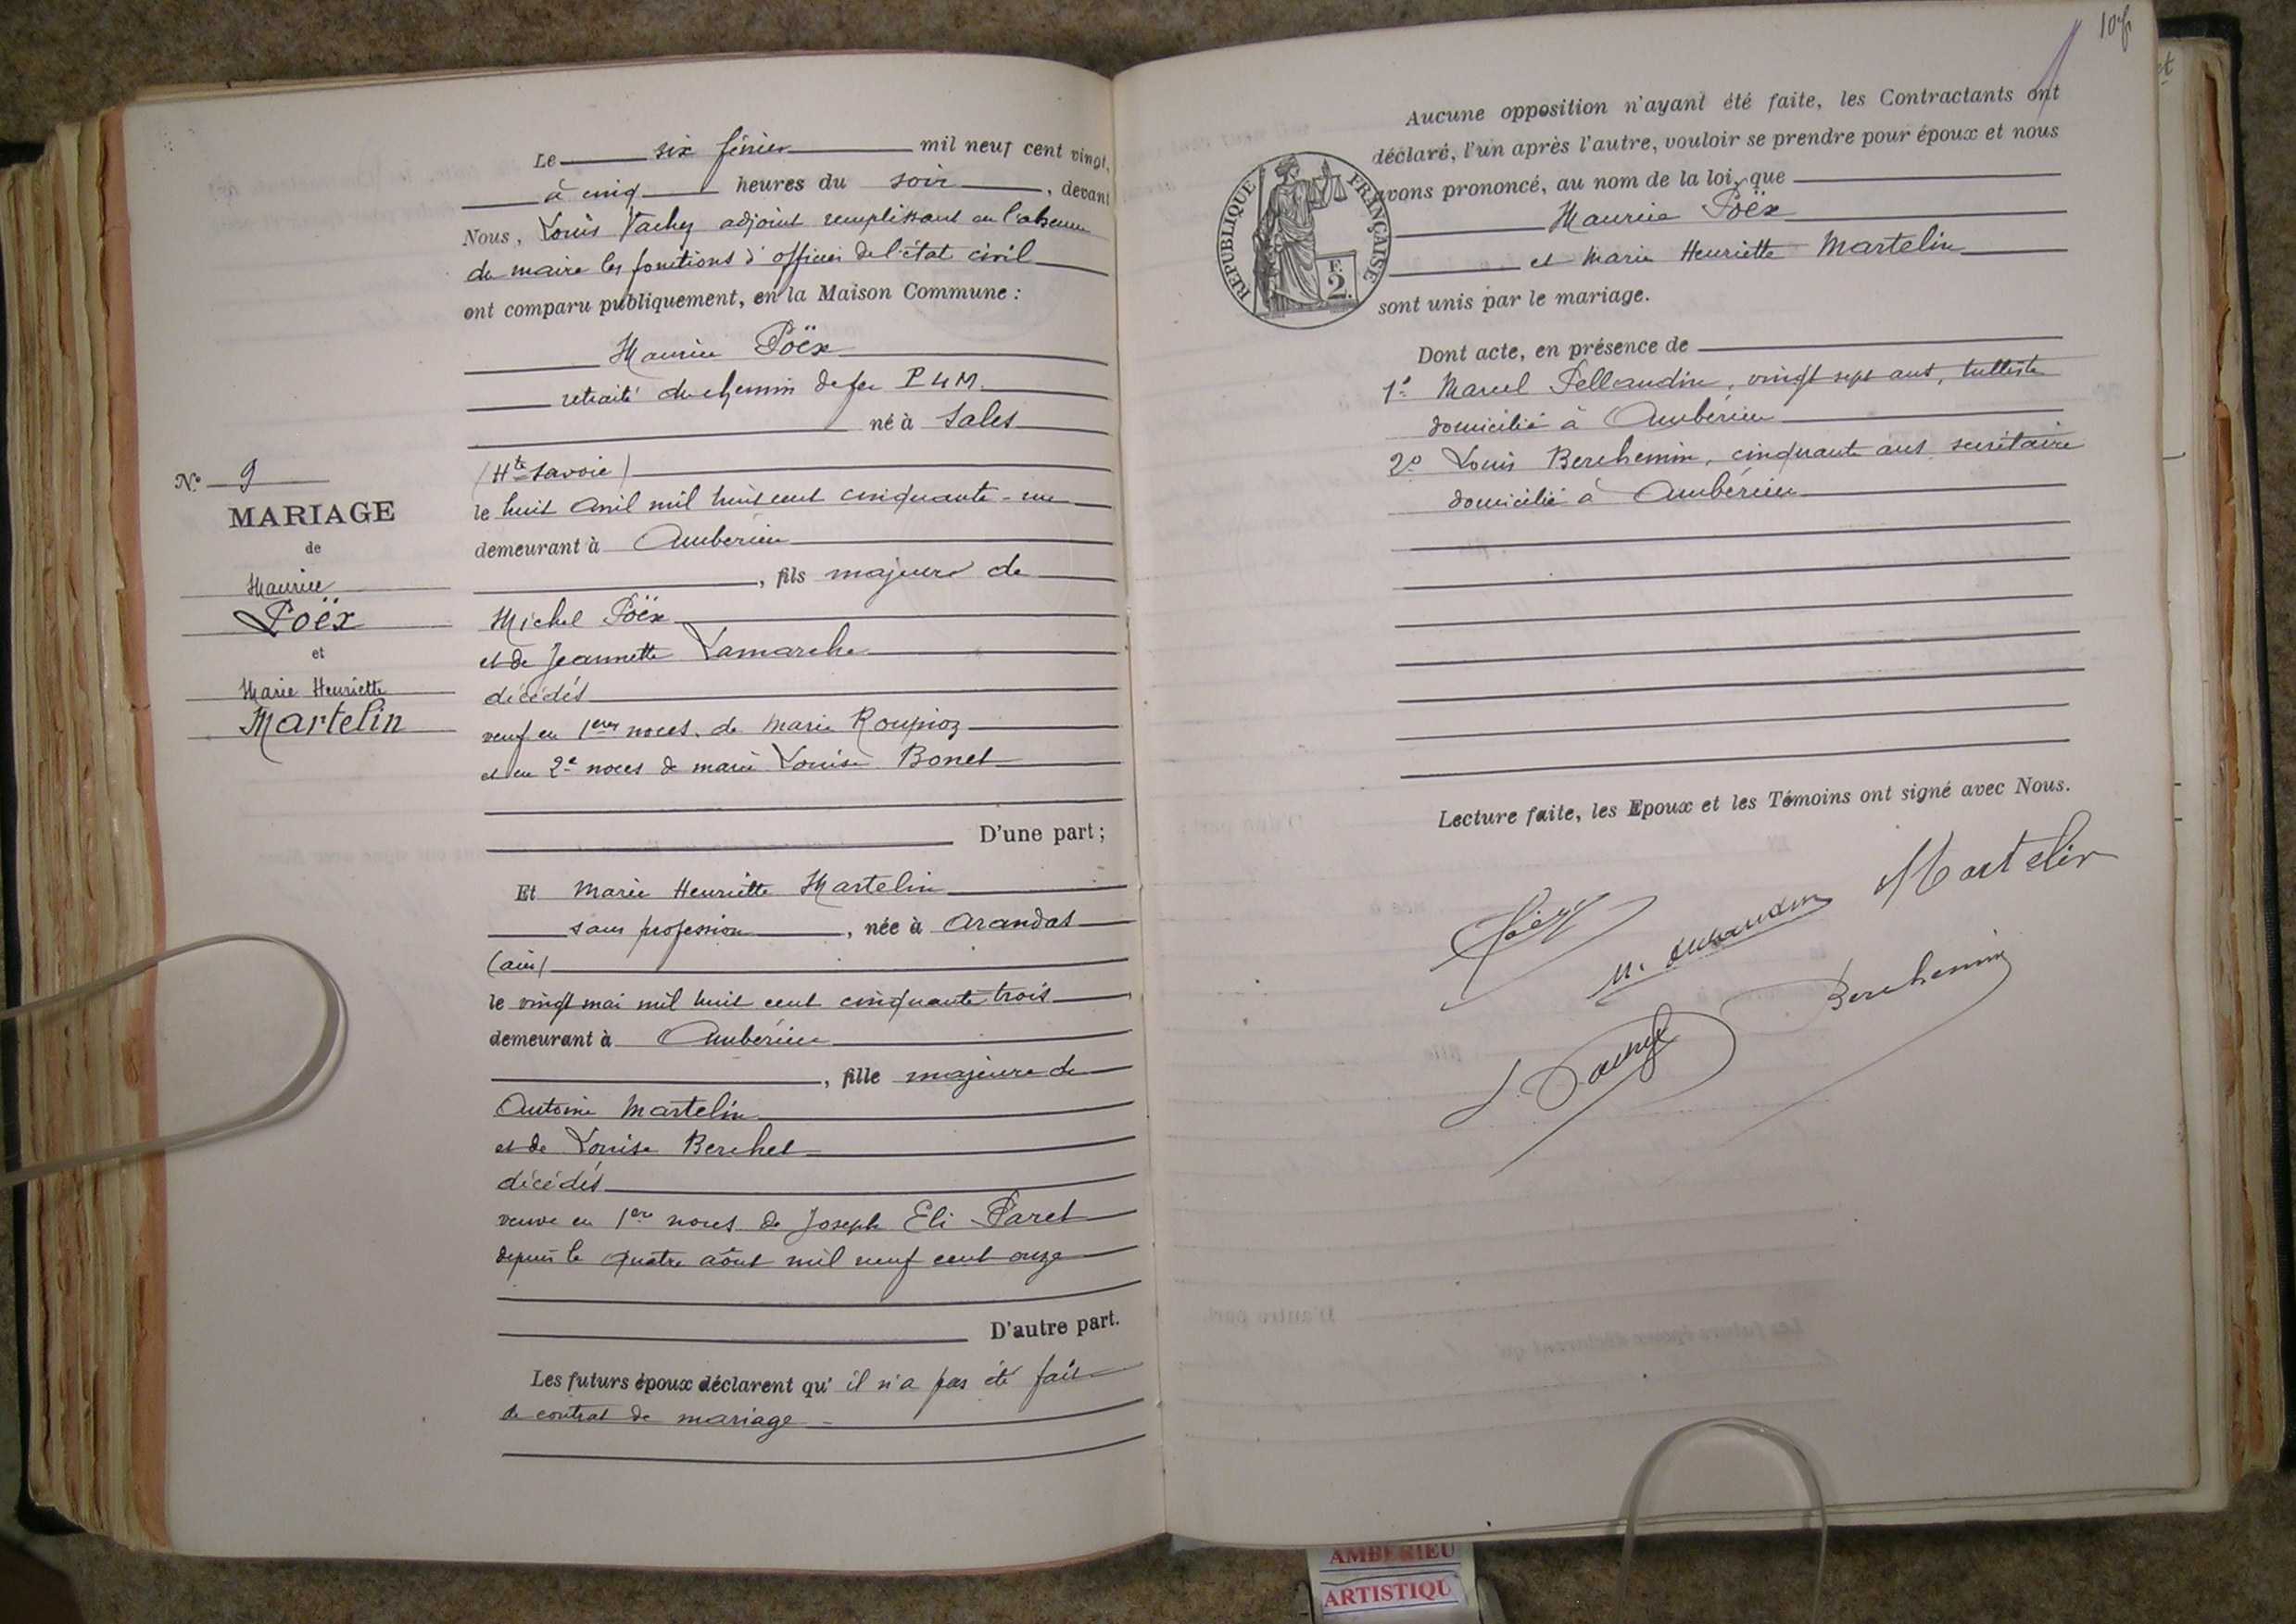 N° 9
MARIAGE
de
Maurice
Poëx
et
Marie Henriette
Martelin
Le six février mil neuf cent vingt,
à cinq heures du soir, devant
Nous, Louis Vachez adjoint remplissant en l'absence
du maire les fonctions d'officier de l'état civil
ont comparu publiquement, en la Maison Commune :
Maurice Poëx
retraité du chemin de fer PLM.
né à Sales
(Hte Savoie)
le huit avril mil huit cent cinquante-un
demeurant à Ambérieu
, fils majeur de
Michel Poëx
et de Jeannette Lamarche
décédés
veuf en 1eres noces de Marie Roupioz
et en 2e noces de marie Louise Bonet
D'une part ;
Et Marie Henriette Martelin
sans profession, née à Arandas
(ain)
le vingt mai mil huit cent cinquante trois
demeurant à Ambérieu
, fille majeure de
Antoine Martelin
et de Louise Berchet
décédés
veuve en 1ere noces de Joseph Eli Paret
depuis le quatre août mil neuf cent onze
D'autre part.
Les futurs époux déclarent qu'il n'a pas été fait
de contrat de mariage -
Aucune opposition n'ayant été faite, les Contractants ont
déclaré, l'un après l'autre, vouloir se prendre pour époux et nous
avons prononcé, au nom de la loi, que
Maurice Poëx
et Marie Henriette Martelin
sont unis par le mariage.
RÉPUBLIQUE FRANÇAISE
F.
2.
Dont acte, en présence de
1° Marcel Pellaudin, vingt sept ans, tulliste
domicilié à Ambérieu
2° Louis Berchemin, cinquante ans secrétaire
domicilié à Ambérieu
Lecture faite, les Epoux et les Témoins ont signé avec Nous.
Martelin
Poëx
Berchemin
AMBERIEU
ARTISTIQU